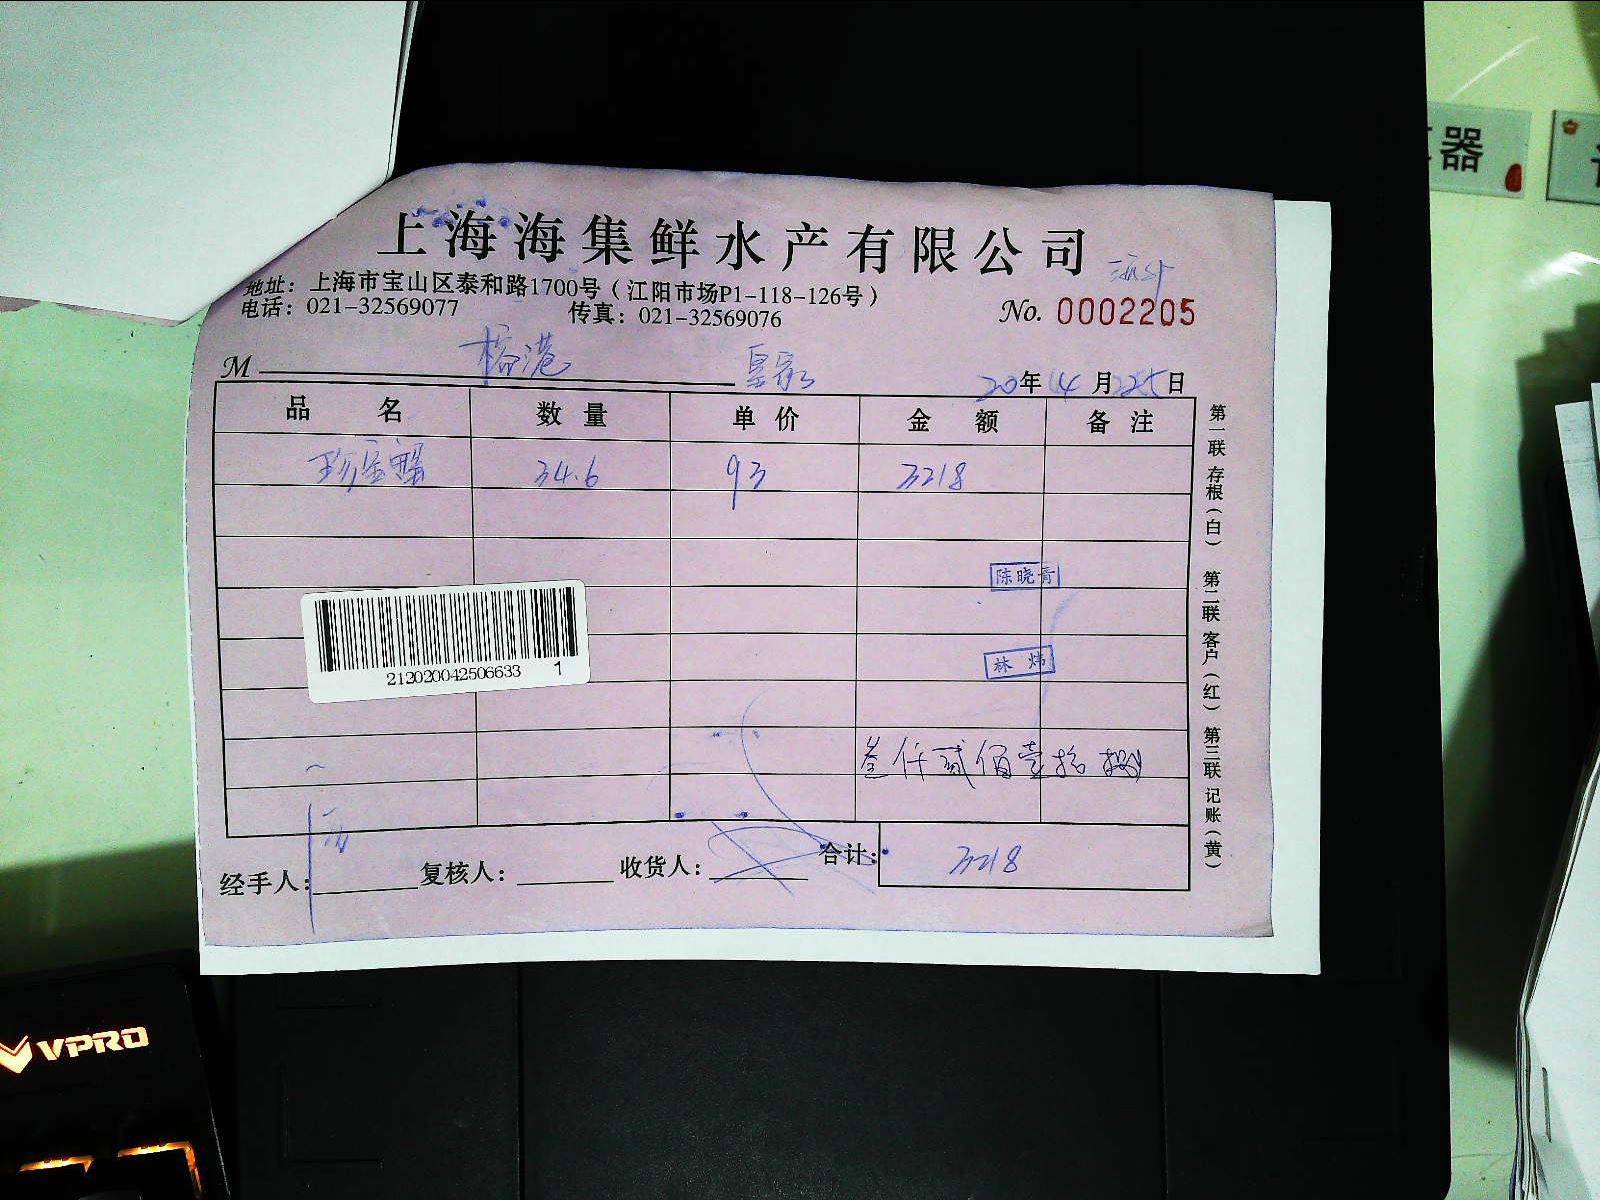 器
上海海集鲜水产有限公司
地址：上海市宝山区泰和路1700号（江阳市场P1-118-126号）
电话：021-32569077 传真：021-32569076
No. 0002205
M 榕港
20年 4月25日
品名 数量 单价 金额 备注
珍宝蟹 34.6 93 3218
陈晓青
林炜
212020042506633 1
叁仟贰佰壹拾捌
经手人： 复核人： 收货人： 合计： 3218
第一联 存根（白） 第二联 客户（红） 第三联 记账（黄）
VPRO